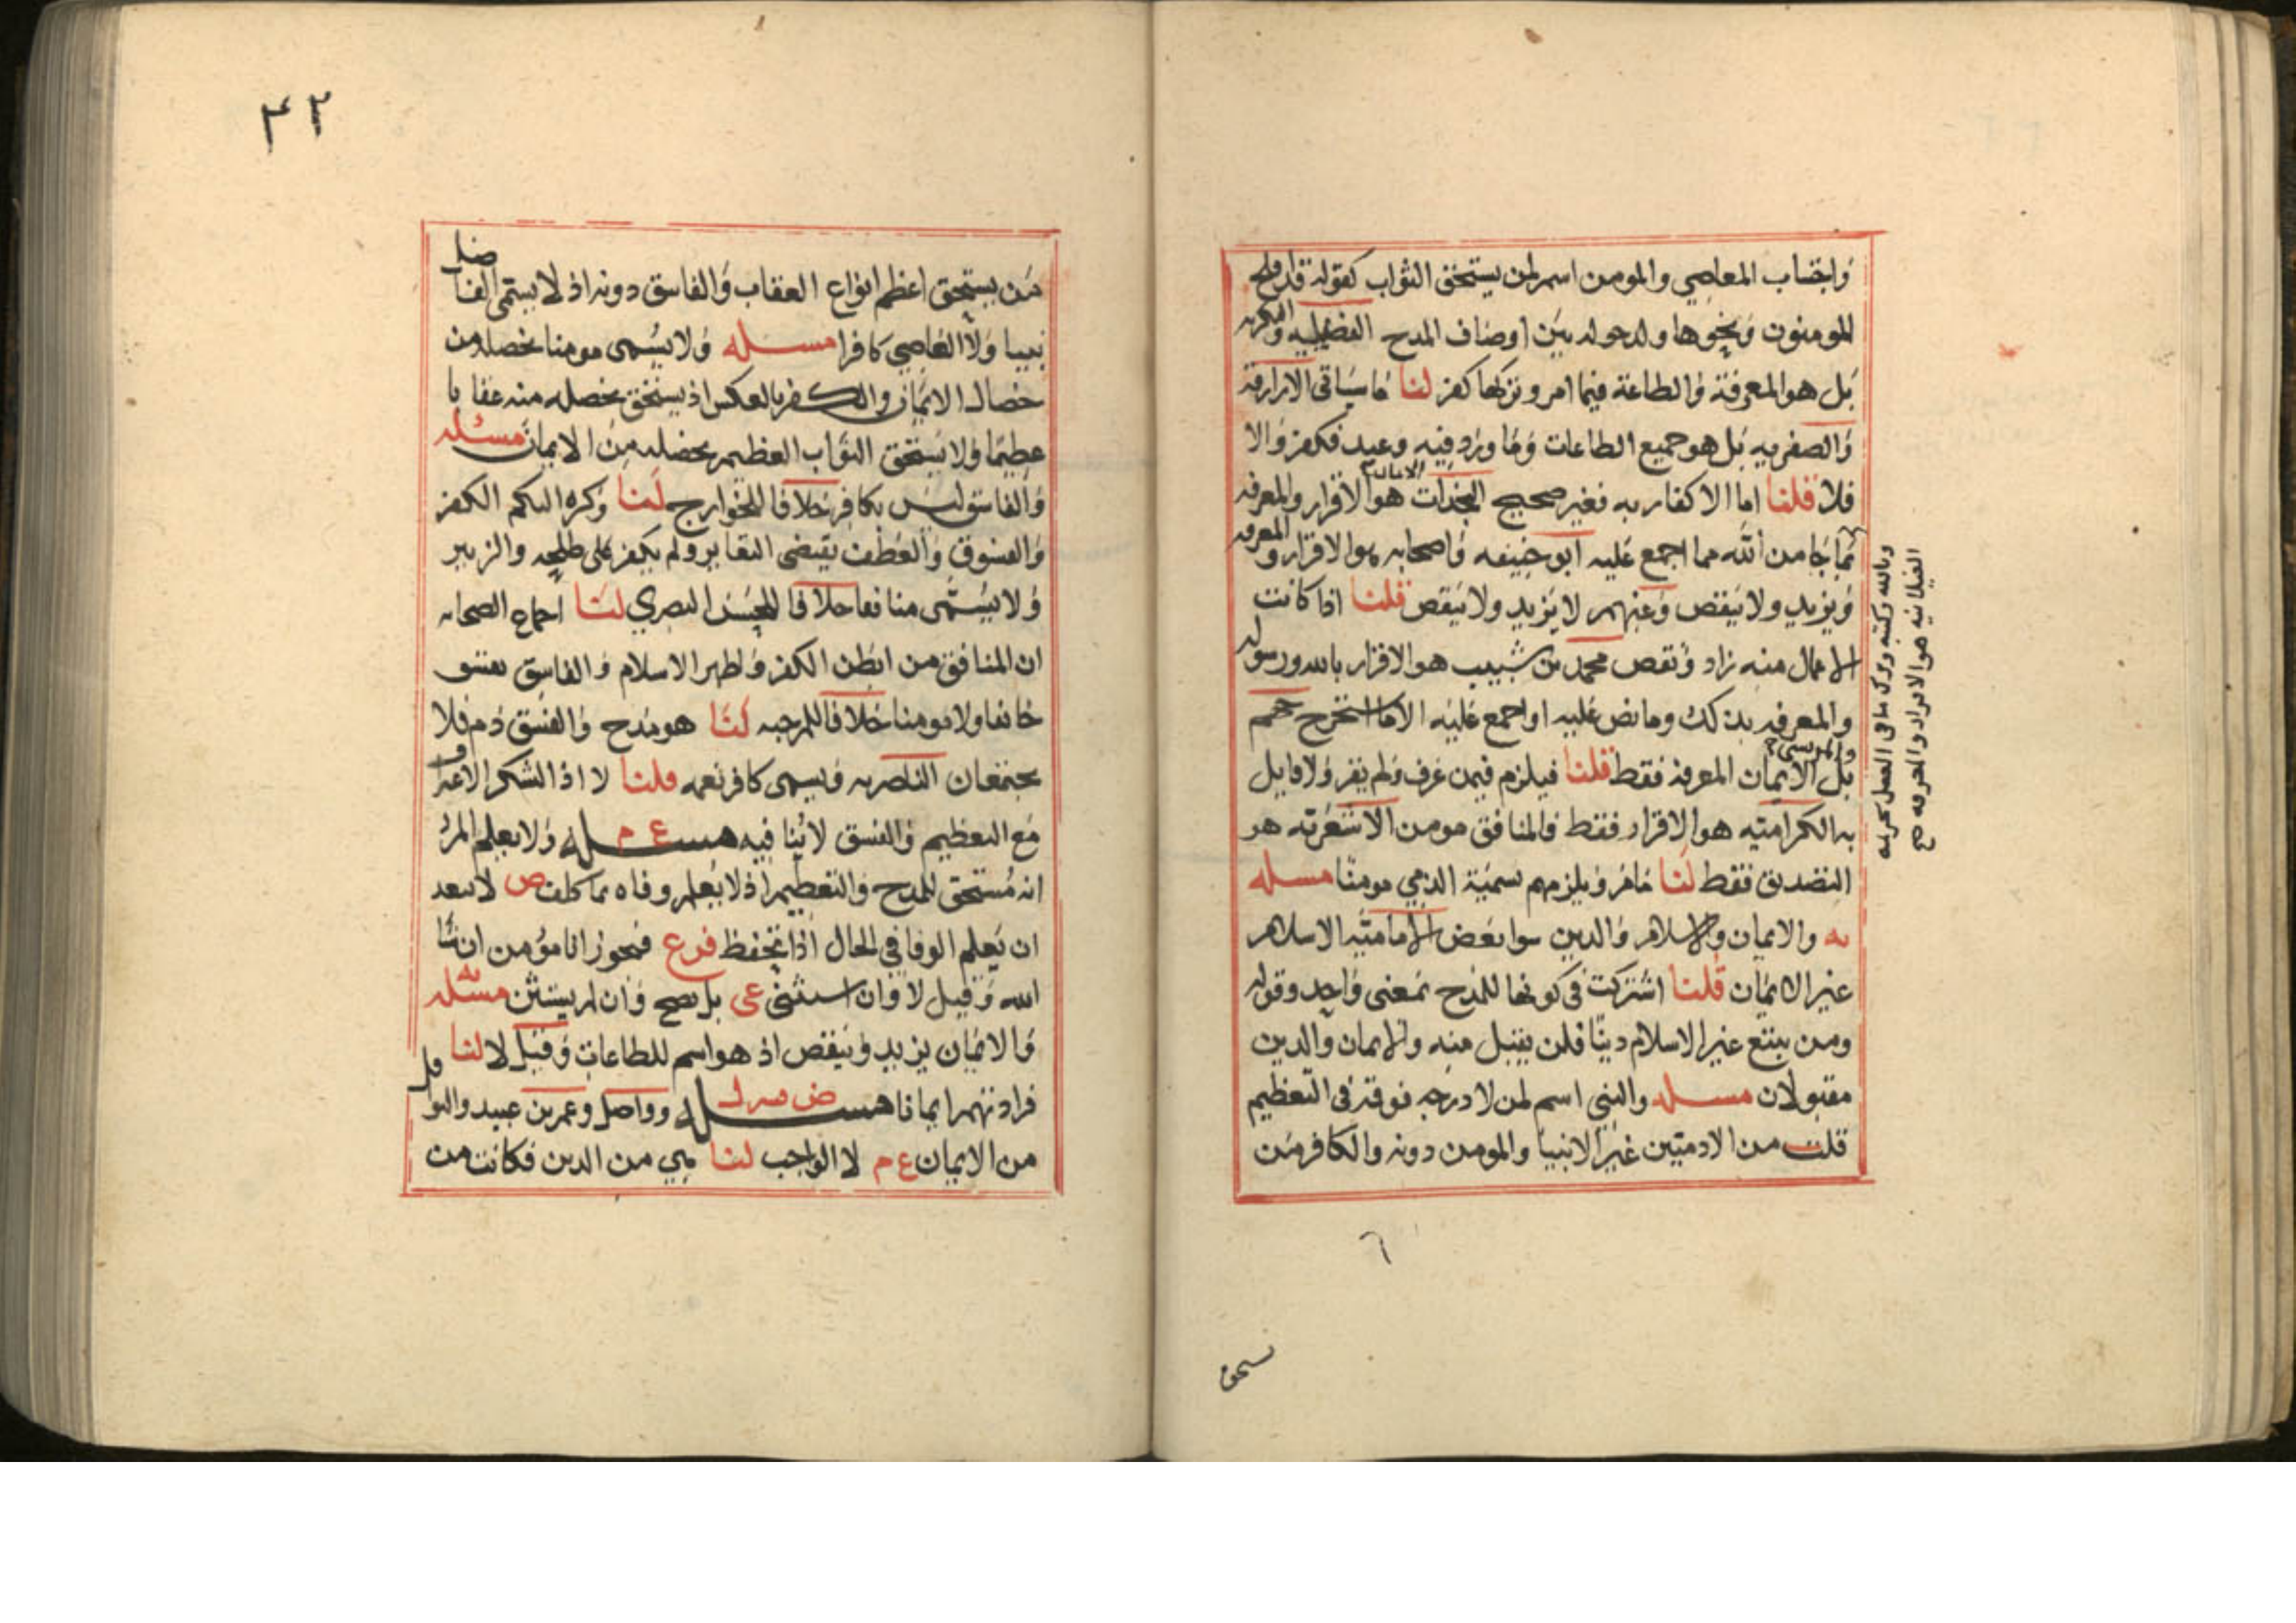 واجتناب المعاصي والمومن اسم لمن يستحق الثواب كقوله قد افلح
المومنون ونحوها ولدخوله بين اوصاف المدح الفضيليه والبكريه
بل هو المعرفة والطاعة فيما امر وتركها كفر لنا ما سياتي الازارقة
والصفريه بل هو جميع الطاعات وما ورد فيه وعيد فكفر والا
فلا قلنا اما الاكفار به فغير صحيح النجدات هو الاقرار والمعرفه
بما جا من الله مما اجمع عليه ابو حنيفه واصحابه هو الاقرار والمعرفه
ويزيد ولا ينقص وعنهم لا يزيد ولا ينقص قلنا اذا كانت
الاعمال منه زاد ونقص محمد بن شبيب هو الاقرار بالله ورسوله
والمعرفه بذلك وما نص عليه او اجمع عليه الا ما استخرج جهم
والمريسي
بل الايمان المعرفة فقط قلنا فيلزم فيمن عرف ولم يقر ولا قايل
به الكراميه هو الاقرار فقط فالمنافق مومن الاشعريه هو
التصديق فقط لنا مامر ويلزمهم تسمية الذمي مومنا مسله
يه والايمان والاسلام والدين سوا بعض الاماميه الاسلام
غير الايمان قلنا اشتركت في كونها للمدح بمعنى واحد وقوله
ومن يبتغ غير الاسلام دينا فلن يقبل منه والايمان والدين
مقبولان مسله والنبي اسم لمن لا درجه فوقه في التعظيم
قلت من الادميين غير الانبيا والمومن دونه والكافر من
الغيلانيه هو الاقرار والمعرفه صح
من يستحق اعظم انواع العقاب والفاسق دونه اذ لا يسمى الفاضل
نبيا ولا العاصي كافرا مسله ولا يسمى مومنا بخصله من
خصال الايمان والكفر بالعكس اذ يستحق بخصله منه عقابا
عظيما ولا يستحق الثواب العظيم بخصله من الايمان مسئله
والفاسق ليس بكافر خلافا للخوارج لنا وكره اليكم الكفر
والفسوق والعطف يقتضي التغاير ولم يكفر علي طلحه والزبير
ولا يسمى منافقا خلافا للحسن البصري لنا اجماع الصحابه
ان المنافق من ابطن الكفر واظهر الاسلام والفاسق
خائفا ولا مومنا خلافا للمرجيه لنا هو مدح والفسق ذم فلا
يجتمعان الناصريه ويسمى كافر نعمه قلنا لا اذ الشكر الاعتراف
مع التعظيم والفسق لا ينافيه مسله ع م ولا يعلم المرؤ
انه مستحق للمدح والتعظيم اذ لا يعلم وفاه بما كلف ص لا يبعد
ان يعلم الوفا في الحال اذا تحفظ فرع فيجوز انا مؤمن ان شا
الله وقيل لا وان استثنى عي بل يصح وان لم يستثن مسئله يه
والايمان يزيد وينقص اذ هو اسم للطاعات وقيل لا لنا
فزادتهم ايمانا مسله وواصل وعمر بن عبيد والنوافل
من الايمان ع م لا الواجب لنا هي من الدين فكانت من